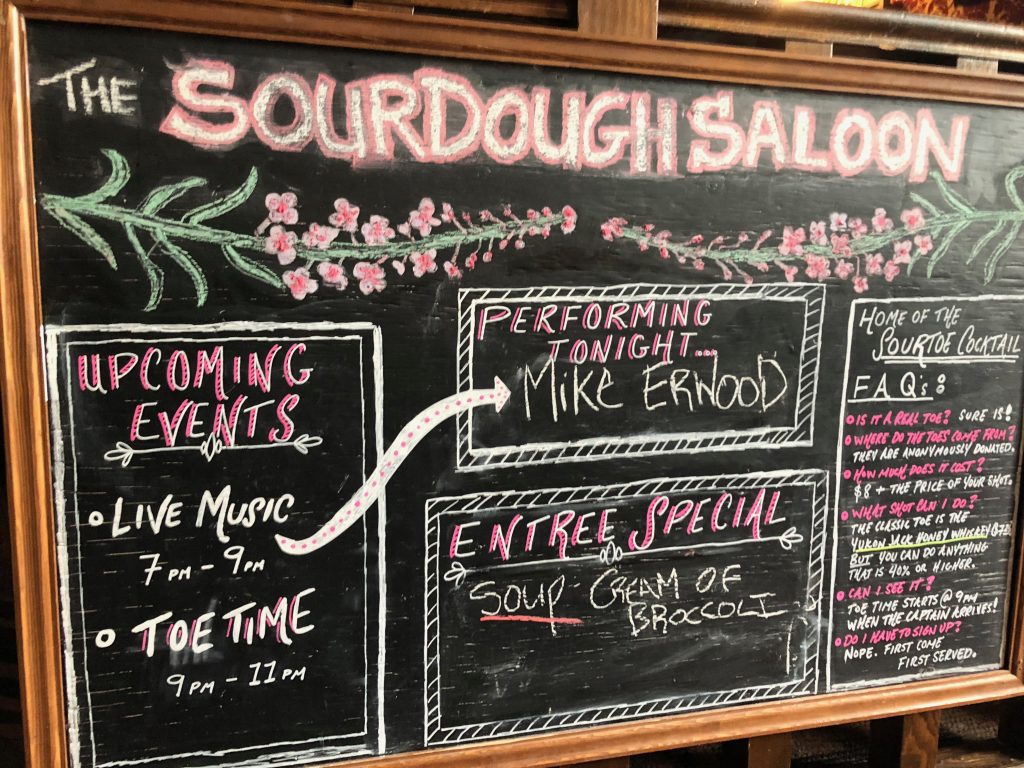 THE SOURDOUGH SALOON
UPCOMING
EVENTS
LIVE MUSIC
7PM - 9PM
TOE TIME
9PM - 11PM
PERFORMING
TONIGHT...
MIKE ERWOOD
ENTREE SPECIAL
SOUP - CREAM OF
BROCCOLI
HOME OF THE
SOURTOE COCKTAIL
F.A.Q's:
IS IT A REAL TOE? SURE IS!
WHERE DO THE TOES COME FROM?
THEY ARE ANONYMOUSLY DONATED.
HOW MUCH DOES IT COST?
$8 + THE PRICE OF YOUR SHOT.
WHAT SHOT CAN I DO?
THE CLASSIC TOE IS THE
YUKON JACK HONEY WHISKEY
BUT YOU CAN DO ANYTHING
THAT IS 40% OR HIGHER.
CAN I SEE IT?
TOE TIME STARTS @ 9PM
WHEN THE CAPTAIN ARRIVES!
DO I HAVE TO SIGN UP?
NOPE. FIRST COME
FIRST SERVED.